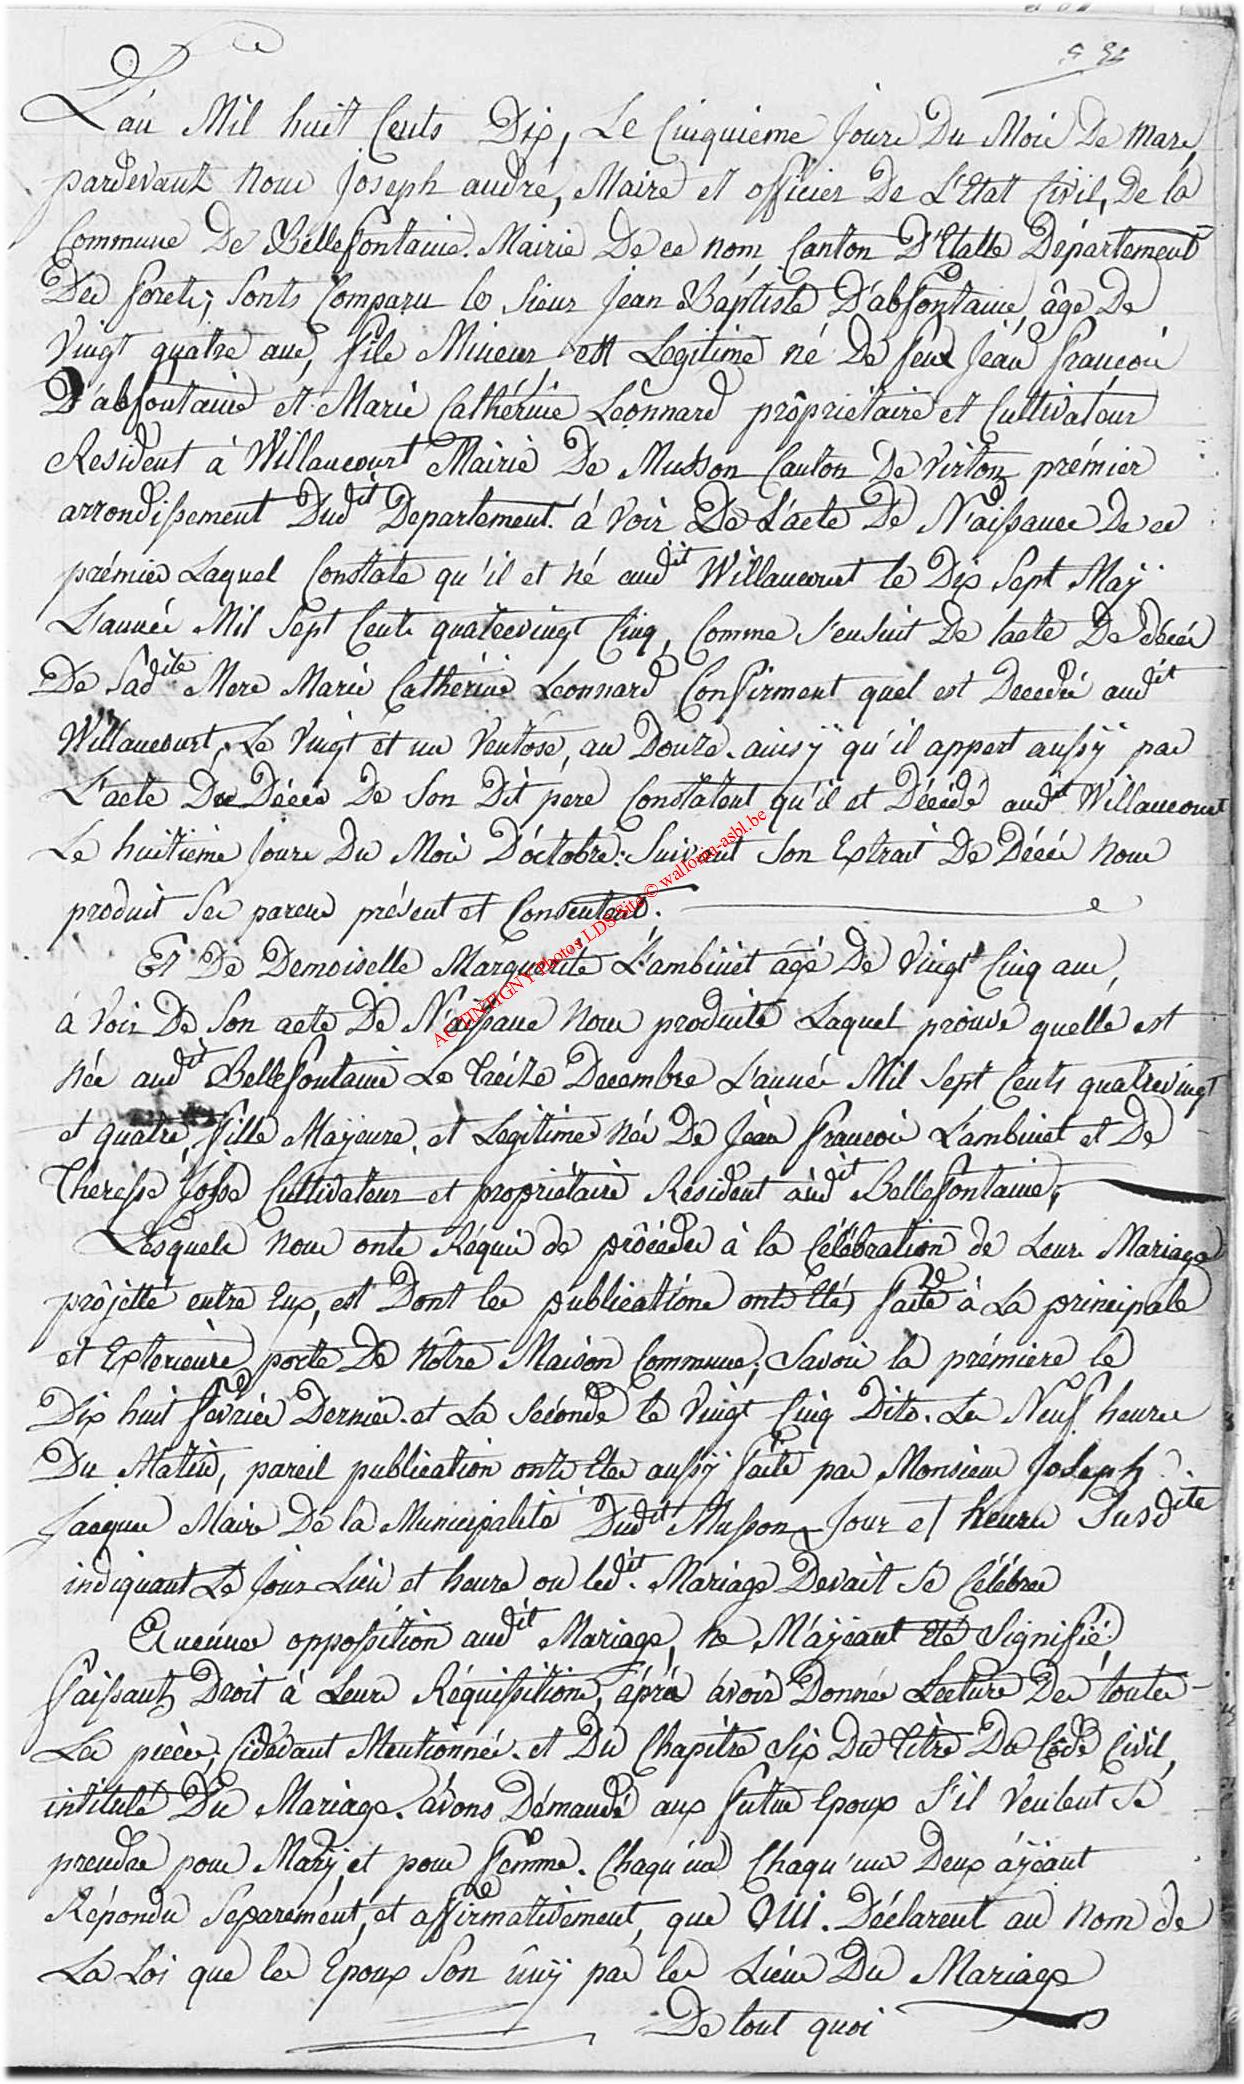 L'an Mil huit Cents Dix, Le Cinquieme Jour Du Mois De Mars
pardevant Nous Joseph andré, Maire et officier De L'Etat Civil, De la
Commune De Bellefontaine. Mairie De ce nom, Canton D'Etalle Département
Des forets; Sonts Comparu le Sieur Jean Baptiste D'absfontaine, âge De
Vingt quatre ans, fils Mineur, est Legitime né De feux Jean francois
D'absfontaine et Marie Cathérine Léonnard propriétaire et Cultivateur
Resident à Willancourt Mairie De Musson Canton De Virton prémier
arrondissement Dudit Departement à Voir De L'acte De Naissance De ce
prémier Laquel Constate qu'il et né audit Willancourt le Dix Sept Maÿ
L'année Mil Sept Cents quatrevingt Cinq, Comme s'ensuit De lacte De décés
De Sadite Mere Marie Cathérine Léonnard Confirment quel est Decedé audit
Willancourt, Le Vingt et un Ventose, an Douze. ainsÿ qu'il appert aussÿ par
L'acte De Décés De Son Dit pere Constatent qu'il et Décédé audit Willancourt
Le huitieme Jour Du Mois D'octobre: Suivant Son Extrait De Décés Nous
produit Ses parens présent et Consentent.
Et De Demoiselle Marguerite L'ambinet âgé De Vingt Cinq ans,
à Voir De Son acte De Naissance Nous produite Laquel prouve quelle est
Née audit Bellefontaine Le Treize Decembre L'année Mil Sept Cents quatrevingt
et quatre, fille Majeure, et Legitime Née De Jean francois L'ambinet et De
Theresse Josse Cultivateur et propriétaire Resident audit Bellefontaine;
Lesquels Nous onts Réquis de procéder à la Célébration de Leur Mariage
projetté entre Eux, est Dont les publications onts Etés faite à La principale
et Exterieure porte De Nôtre Maison Commune; Savoir la prémiere le
Dix huit fevrier Dernier. et La Séconde le Vingt Cinq Dito. Le Neuf heures
Du Matin, pareil publication onts Etes aussÿ faite par Monsieur Joseph
Jacques Maire De la Municipalité Dudit Musson Jour et heure Susdite
indiquant Le Jour Lieu et heure ou ledit. Mariage Devait Se Célébrer
Aucunes oppossition audit Mariage, ne M'aÿeant Eté Signifié,
faissant Droit à Leurs Réquissition, âprés avoir Donnée Lecture De toutes
Les pièces, Cidevant Mentionnés. et Du Chapitre Six Du Titre Du Code Civil,
intitulé Du Mariage. avons Démandé aux futur Epoux S'il Veulent Se
prendre pour Marÿ, et pour femme. Chaqu'un Chaqu'une Deux aÿeant
Répondu Separément, et affirmativement, que OUI. Déclarent au Nom de
La Loi que les Epoux Son ûnÿ par les Liens Du Mariage
De tout quoi
ACTINTIGNY Photos LDS Site © wallonia-asbl.be